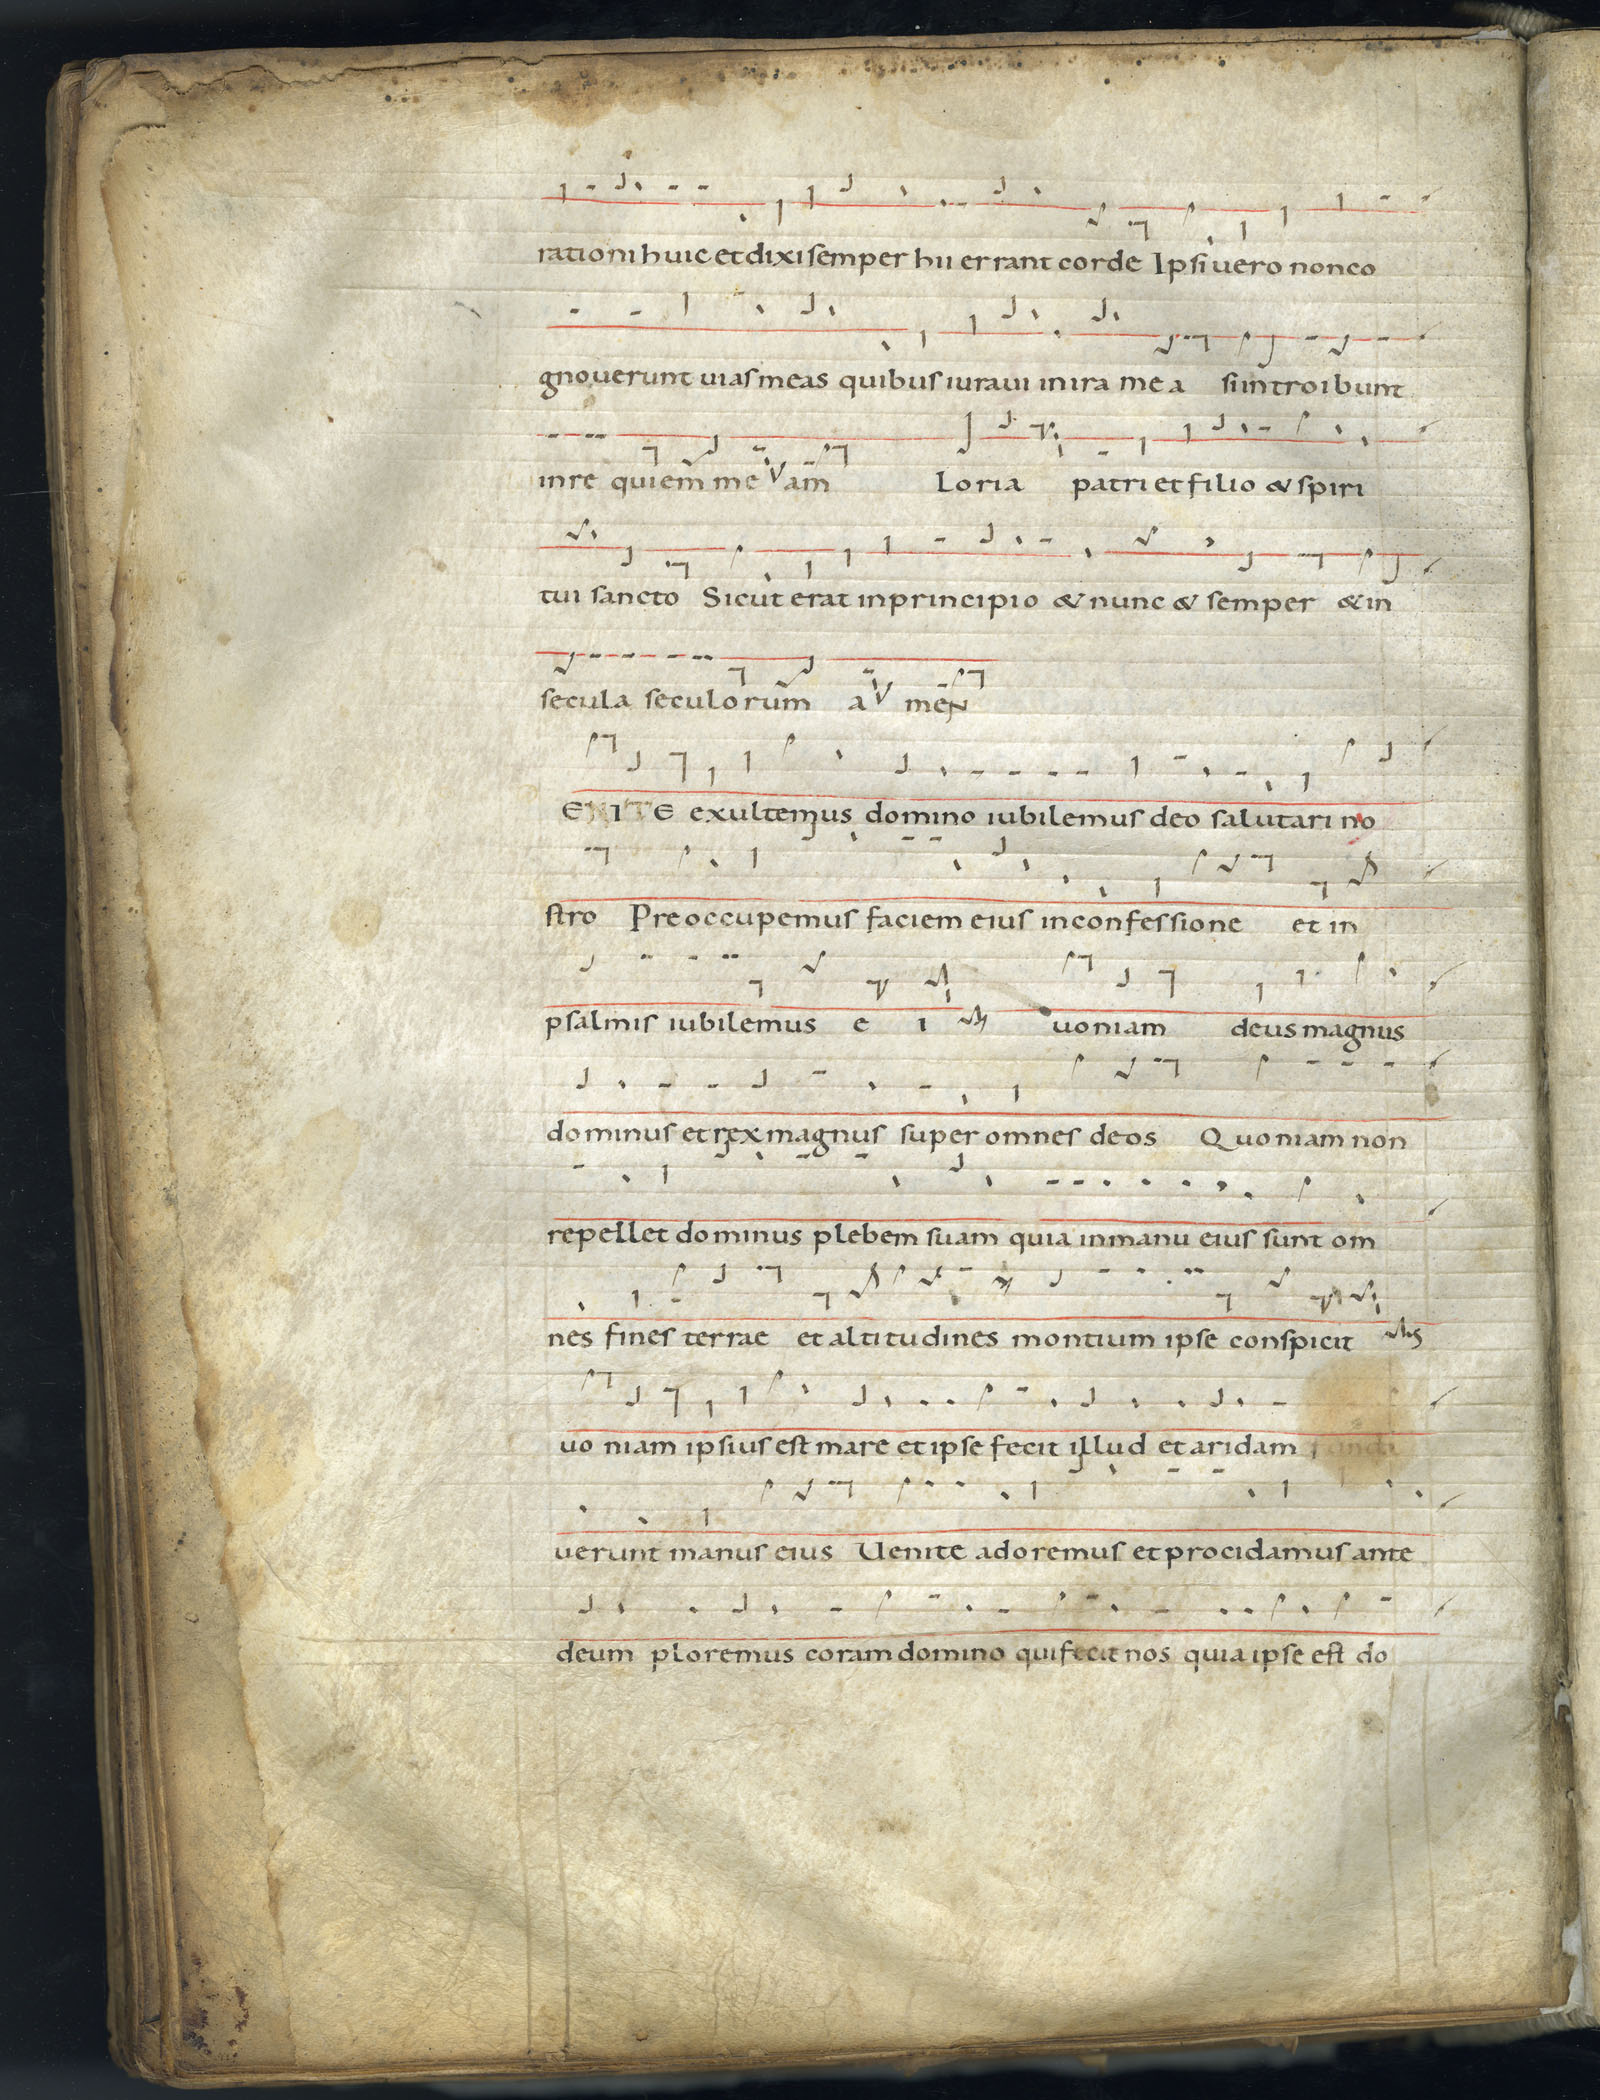 rationi huic et dixi semper hii errant corde Ipsi vero non co
gnoverunt vias meas quibus iuravi in ira mea si introibunt
in re quiem me am Loria patri et filio & spiri
tui sancto Sicut erat in principio & nunc & semper & in
secula seculorum a meN
ENITE exultemus domino iubilemus deo salutari no
stro Preoccupemus faciem eius in confessione et in
psalmis iubilemus e i uoniam deus magnus
dominus et rex magnus super omnes deos Quoniam non
repellet dominus plebem suam quia in manu eius sunt om
nes fines terrae et altitudines montium ipse conspicit
uo niam ipsius est mare et ipse fecit illud et aridam
uerunt manus eius Uenite adoremus et procidamus ante
deum ploremus coram domino qui fecit nos quia ipse est do